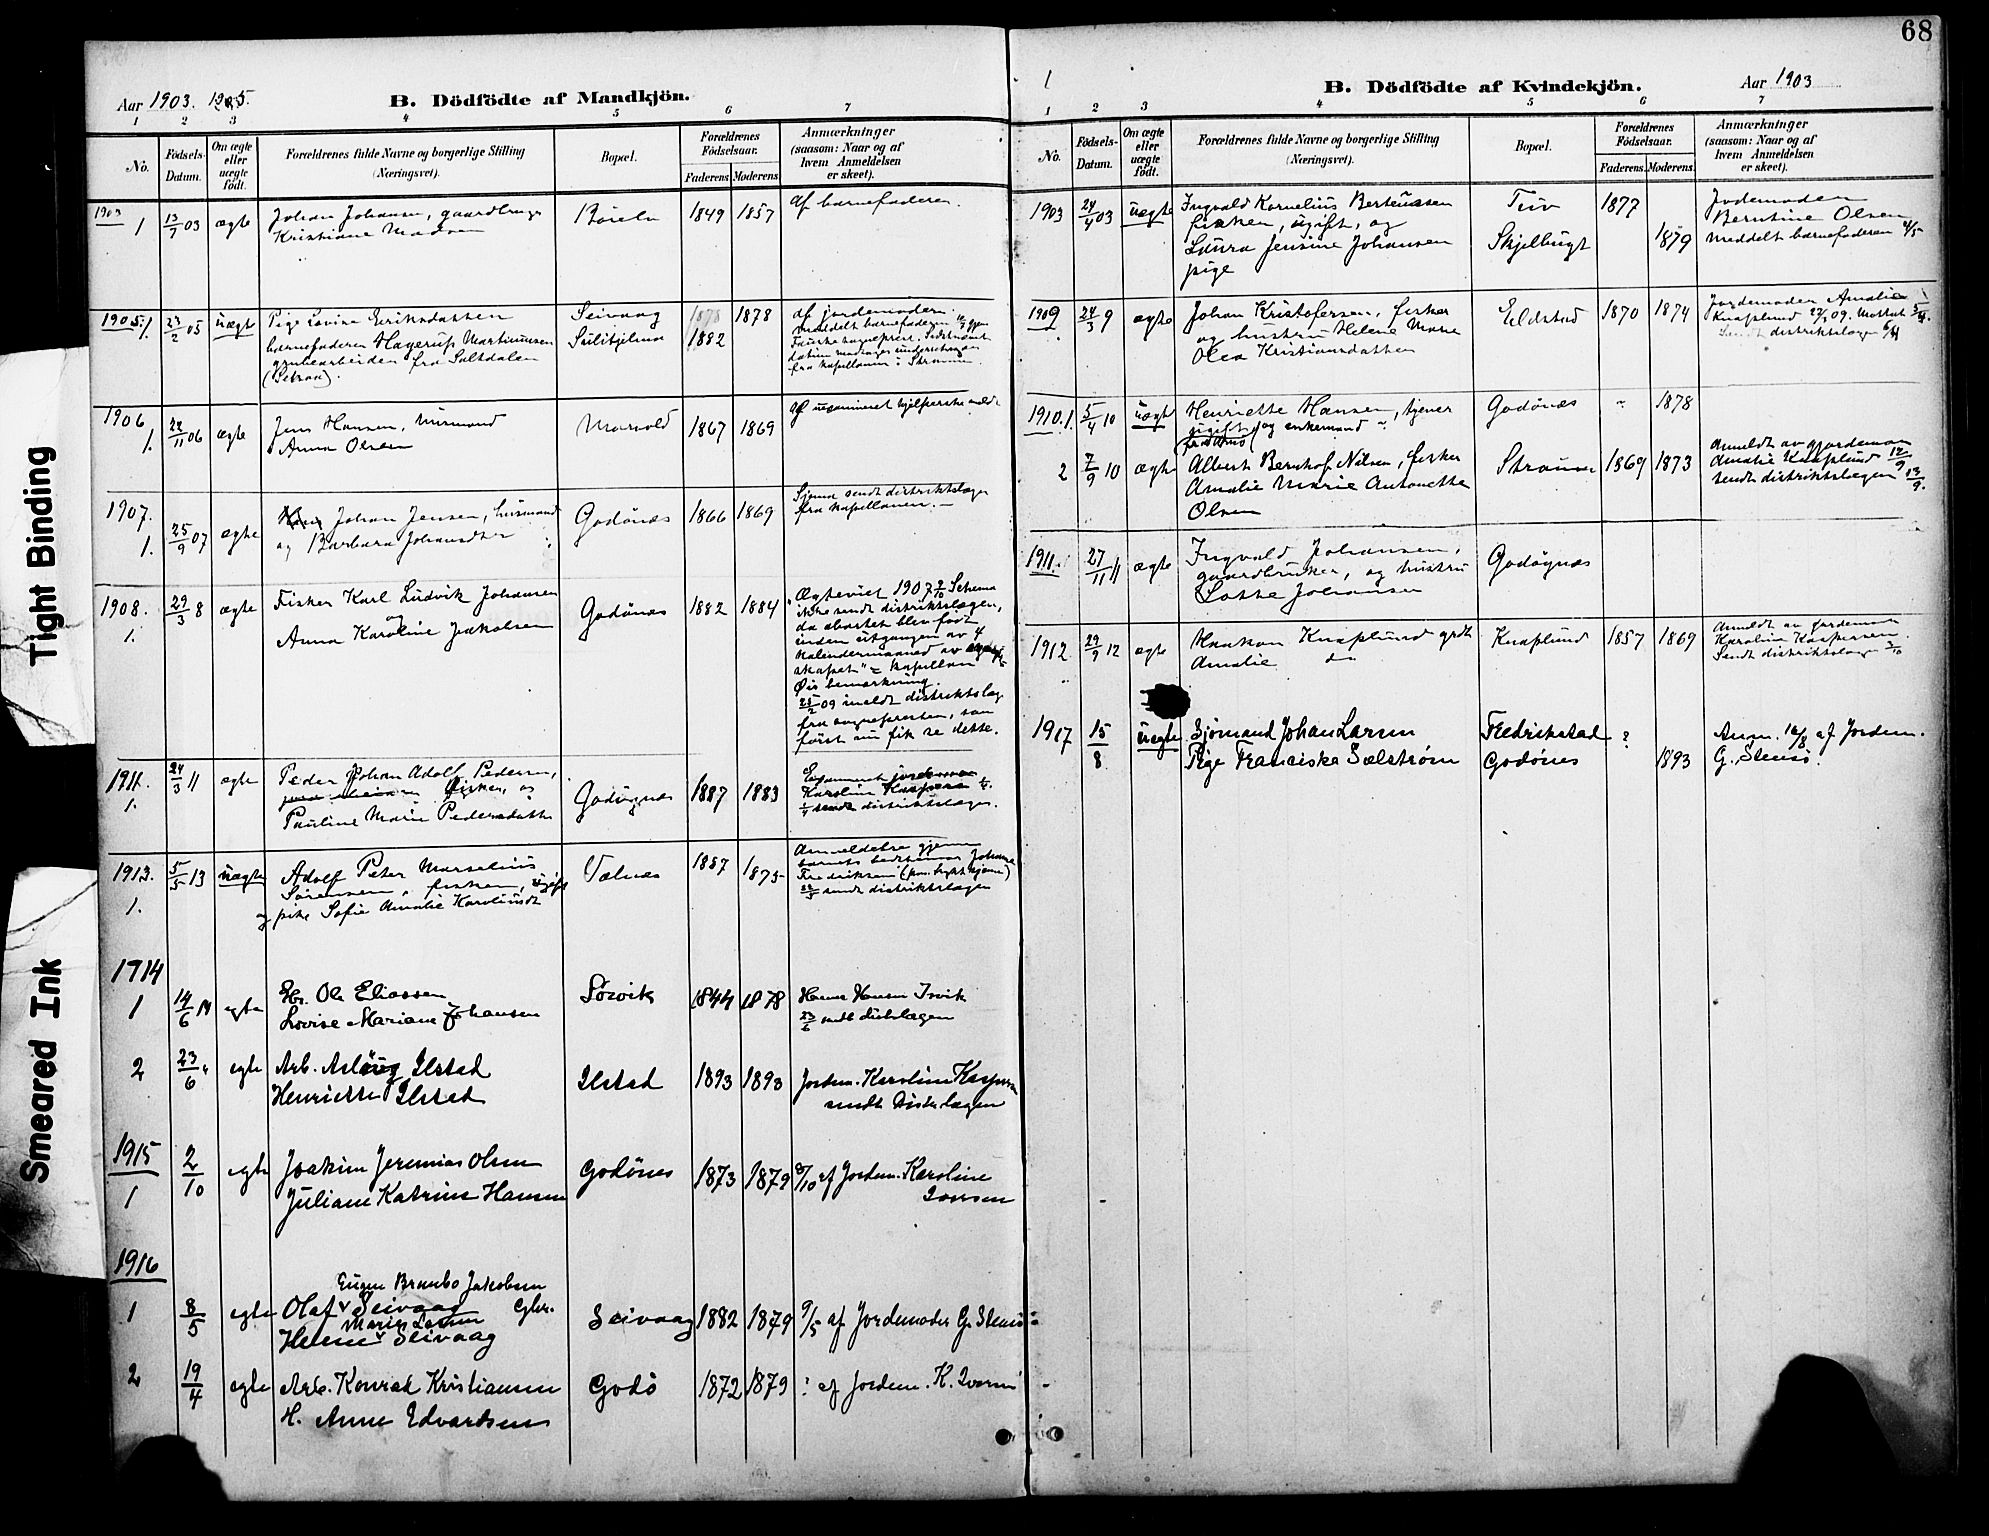 68
Tight Binding
Smeared Ink
Aar 1903. 1905.
B. Dödfödte af Mandkjön.
1 2 3 4 5 6 7
No.
Födsels-Datum.
Om ægte eller uægte födt.
Forældrenes fulde Navne og borgerlige Stilling
(Næringsvei).
Bopæl.
Forældrenes Födselsaar.
Faderens Moderens
Anmærkninger
(saasom: Naar og af
hvem Anmeldelsen
er skeet).
1903 1 13/7 03 ægte Johan Johansen, gaardbruger 1849 1857 af barnefaderen.
Kristiane Madsen
1905. 1. 23/2 05 uægte Pige Lovise Eriksdatter Seivaag 1878 1878 af jordemoderen.
barnefaderen Hagerup Martinussen Sulitjelma 1882 meddelt barnefaderen
grubearbeider fra Saltdalen
fra kapellanen i Strømm
1906 1. 22/11 06 ægte Jens Hansen, husmand 1867 1869 af uexamineret hjelperske
Anna Olsen
1907. 1. 25/9 07 ægte Johan Jensen, husmand Godönes 1866 1869 Skjema sendt distriktslægen
og Barbara Johansdtr fra kapellanen. –
1908. 1. 29/3 8 ægte Fisker Karl Ludvik Johansen Godönes 1882 1884 "Ægteviet 1907 Schema
og Anna Karoline Jakobsen ikke sendt distriktslægen,
da abortet blev født
inden utgangen av 4
kalendermaaned av
skapet" = kapellan
Øis bemerkning.
25/2 09 meldt distriktslæg
fra sognepresten, som
först nu fik se dette.
1911. 1. 24/3 11 ægte Peder Johan Adolf Pedersen, Godøynes 1887 1883 Examinert jordemor
fisker, og Karoline
Pauline Marie Pedersdatter sendt distriktslægen.
1913. 1. 5/5 13 uægte Adolf Peter Marselius Valnes 1887 1875 Anmeldelse gjennem
Sörensen, fisker, ugift barnets bedstemor Johanna
og pike Sofie Amalie Karolinusdt Fredriksen
sendt distriktslægen
1914
1 14/6 14 egte Ole Eliassen Sörvik 1844 1878 Hansen
Lovise Mariane Johansen 23/6 sendt distslægen
2 23/6 " egte Arb. Aslaug Ilstad Ilstad 1893 1893 Jordem. Karoline
Henriette Ilstad sendt Distr. lægen
1915
1 2/10 egte Joakim Jeremias Olsen Godönes 1873 1879 af Jordem. Karoline
Juliane Katrine Hansen
1916
Eugen Jakobsen
1 8/5 egte Olaf v Seivaag Gbr. Seivaag 1882 1879 9/5 af Jordemoder G. Stensö
Marie Larsen
Helene v Seivaag
2 19/4 egte Arb. Konrad Kristiansen Godö 1872 1879 : af Jordem. K.
H. Anne Edvardsen
1
B. Dödfödte af Kvindekjön.
Aar 1903
1 2 3 4 5 6 7
No.
Födsels-Datum.
Om ægte eller uægte födt.
Forældrenes fulde Navne og borgerlige Stilling
(Næringsvei).
Bopæl.
Forældrenes Födselsaar.
Faderens Moderens
Anmærkninger
(saasom: Naar og af
hvem Anmeldelsen
er skeet).
1903 24/4 03 uægte Ingvald Kornelius Berteusen Tuv 1877 Jordemoder
fisker, ugift, og Berntine Olsen
Laura Jensine Johansen Skjelbugt 1879 meddelt barnefaderen 4/5
pige
1909 24/3 9 ægte Johan Kristofersen, fisker Eldstad 1870 1874 Jordemoder Amalie
og hustru Helene Marie Knaplund
Olea Kristiansdatter distriktslægen
1910. 1. 5/4 10 uægte Henriette Hansen, tjener Godönes " 1878
ugift og enkemand
2 7/9 10 ægte Albert Bernhof Nilsen, fisker Strömm 1869 1873 Anmeldt av jordemor
Amalie Marie Antonette Amalie Knaplund 12/9
Olsen sendt distriktslægen 13/9.
1911. 27/11 11 ægte Ingvald Johansen, Godøynes
gaardbruker, og hustru
Lotte Johansen
1912 29/9 12 ægte Haakon Knaplund Knaplund 1857 1869 Anmeldt av jordemor
Amalie do Karoline Kaspersen
Sendt distriktslægen
1917 15/8 uægte Sjömand Johan Larsen Fredrikstad ? Anm. 16/8 af Jordem.
Pige Franciske Sælström Godönes 1893 G. Stensö.